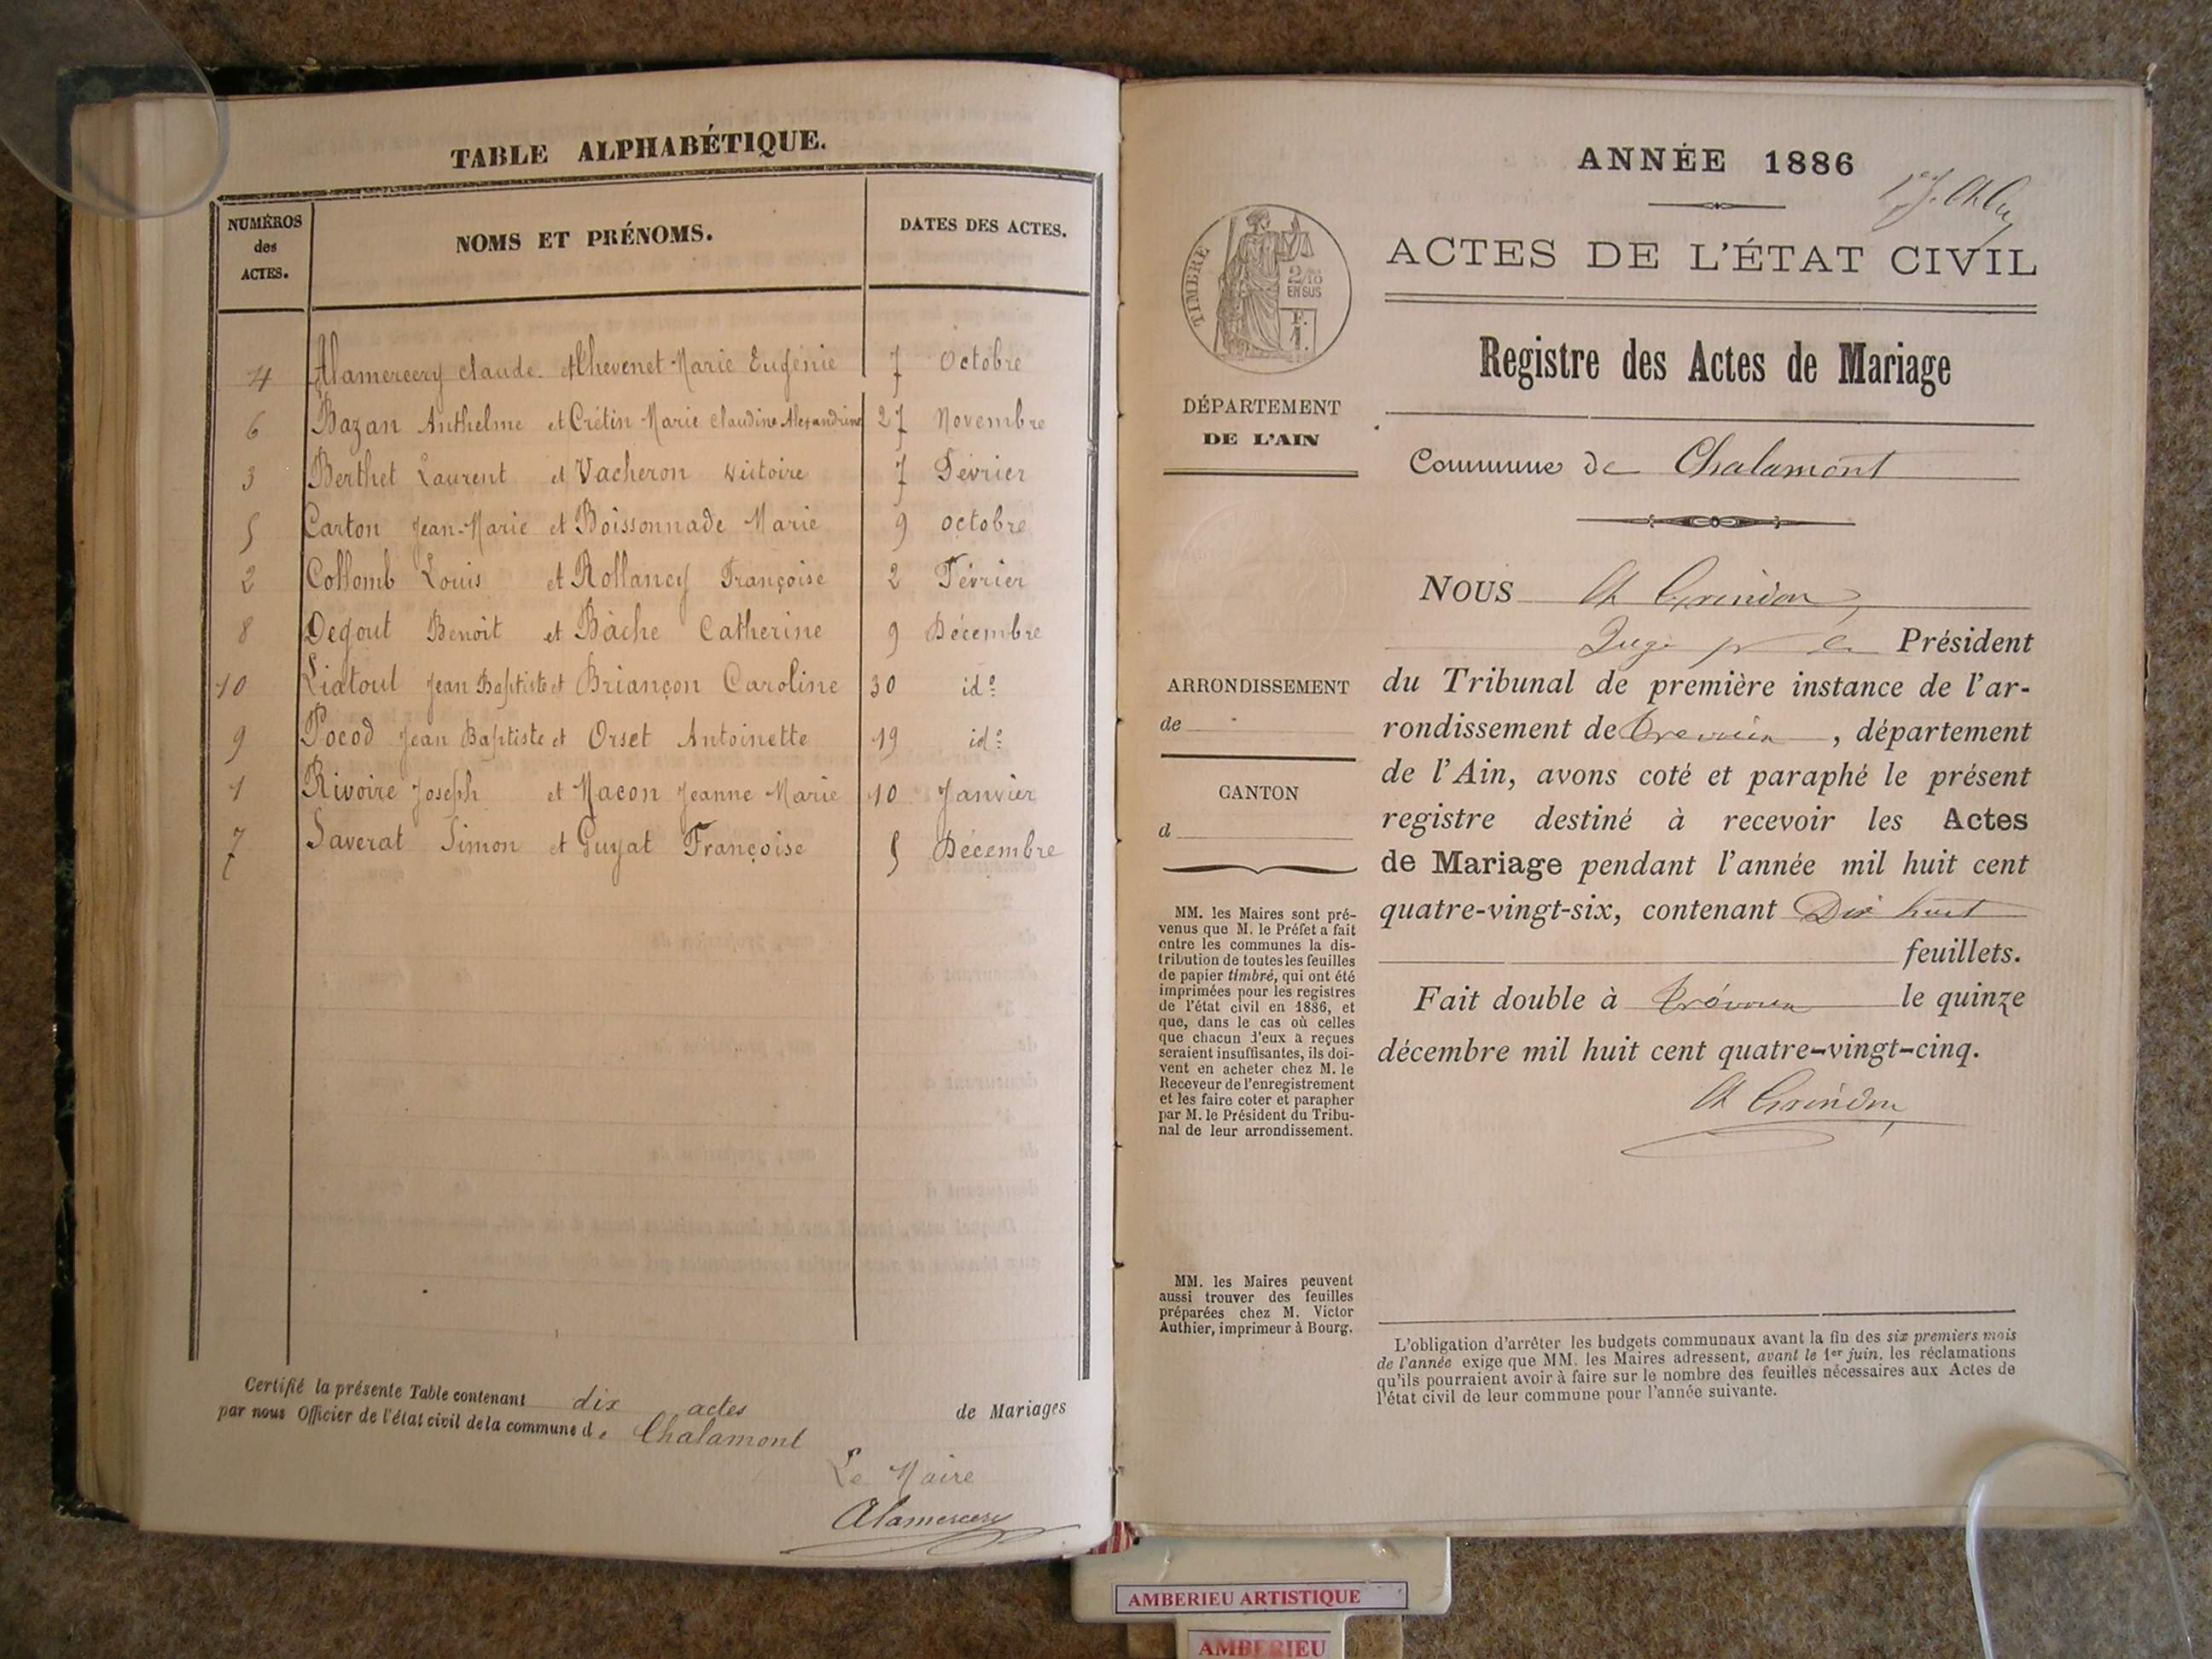 TABLE ALPHABÉTIQUE.
NUMÉROS
des
ACTES.
NOMS ET PRÉNOMS.
DATES DES ACTES.
4 Alamercery Claude et Chevenet Marie Eugénie 7 Octobre
6 Bazan Anthelme et Crétin Marie Claudine Alexandrine 27 Novembre
3 Berthet Laurent et Vacheron Victoire 7 Février
5 Carton Jean-Marie et Boissonnade Marie 9 octobre
2 Collomb Louis et Rollancy Françoise 2 Février
8 Degout Benoit et Bâche Catherine 9 Décembre
10 Liatout Jean Baptiste et Briançon Caroline 30 ido
9 Pocod Jean Baptiste et Orset Antoinette 19 ido
1 Rivoire Joseph et Macon Jeanne Marie 10 Janvier
7 Saverat Simon et Guyat Françoise 5 Décembre
Certifié la présente Table contenant dix actes de Mariages
par nous Officier de l'état civil de la commune de Chalamont
Le Maire
Alamercery
ANNÉE 1886
ACTES DE L'ÉTAT CIVIL
TIMBRE
2/10
EN SUS
F.
1.
Registre des Actes de Mariage
DÉPARTEMENT
DE L'AIN
Commune de Chalamont
NOUS Ch Grindon
Juge pr le Président
ARRONDISSEMENT
de
CANTON
d
du Tribunal de première instance de l'ar-
rondissement de Trévoux, département
de l'Ain, avons coté et paraphé le présent
registre destiné à recevoir les Actes
de Mariage pendant l'année mil huit cent
quatre-vingt-six, contenant Dix huit
feuillets.
Fait double à Trévoux le quinze
décembre mil huit cent quatre-vingt-cinq.
Ch Grindon
MM. les Maires sont pré-
venus que M. le Préfet a fait
entre les communes la dis-
tribution de toutes les feuilles
de papier timbré, qui ont été
imprimées pour les registres
de l'état civil en 1886, et
que, dans le cas où celles
que chacun d'eux a reçues
seraient insuffisantes, ils doi-
vent en acheter chez M. le
Receveur de l'enregistrement
et les faire coter et parapher
par M. le Président du Tribu-
nal de leur arrondissement.
MM. les Maires peuvent
aussi trouver des feuilles
préparées chez M. Victor
Authier, imprimeur à Bourg.
L'obligation d'arrêter les budgets communaux avant la fin des six premiers mois
de l'année exige que MM. les Maires adressent, avant le 1er juin, les réclamations
qu'ils pourraient avoir à faire sur le nombre des feuilles nécessaires aux Actes de
l'état civil de leur commune pour l'année suivante.
AMBERIEU ARTISTIQUE
AMBERIEU